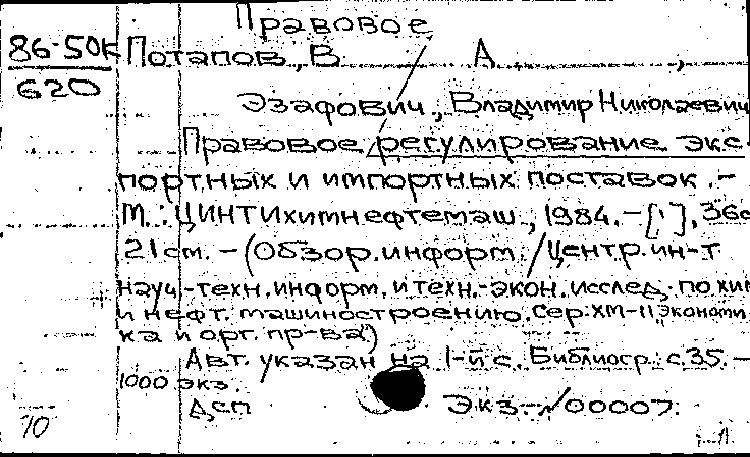 Правовое
86-50к Потапов, В. А. ,
620
Эзафович, Владимир Николаевич
Правовое регулирование экс-
портных и импортных поставок. -
М.: ЦИНТИхимнефтемаш, 1984. - [1], 36с
21 см. - (Обзор. информ. / Центр. ин-т
науч.-техн. информ. и техн.-экон. исслед. по хим
и нефт. машиностроению. Сер: ХМ-11, Экономи
ка и орг. пр-ва)
Авт. указан на 1-й с. Библиогр.: с.35. -
1000 экз.
ДСП Экз. № 00007.
70